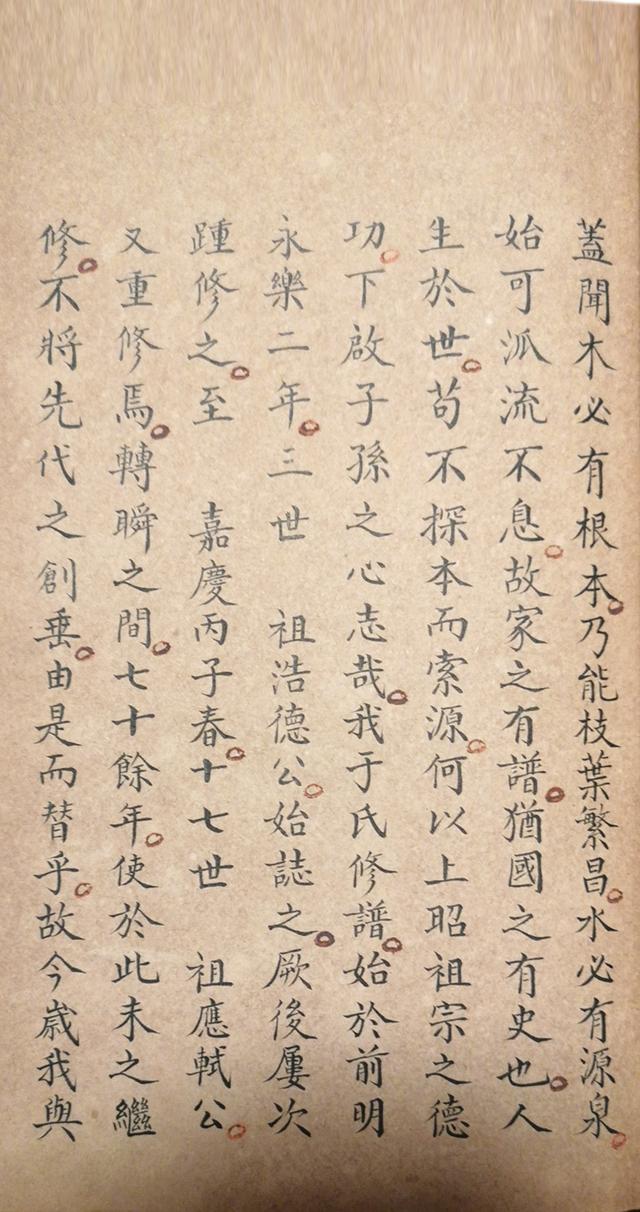 蓋聞木必有根本。乃能枝葉繁昌。水必有源泉。
始可派流不息。故家之有譜。猶國之有史也。人
生於世。苟不探本而索源。何以上昭祖宗之德
功。下啟子孫之心志哉。我于氏修譜。始於前明
永樂二年。三世　祖浩德公。始誌之。厥後屢次
踵修之。至　嘉慶丙子春。十七世　祖應軾公。
又重修焉。轉瞬之間。七十餘年。使於此未之繼
修。不將先代之創垂。由是而替乎。故今歲我與